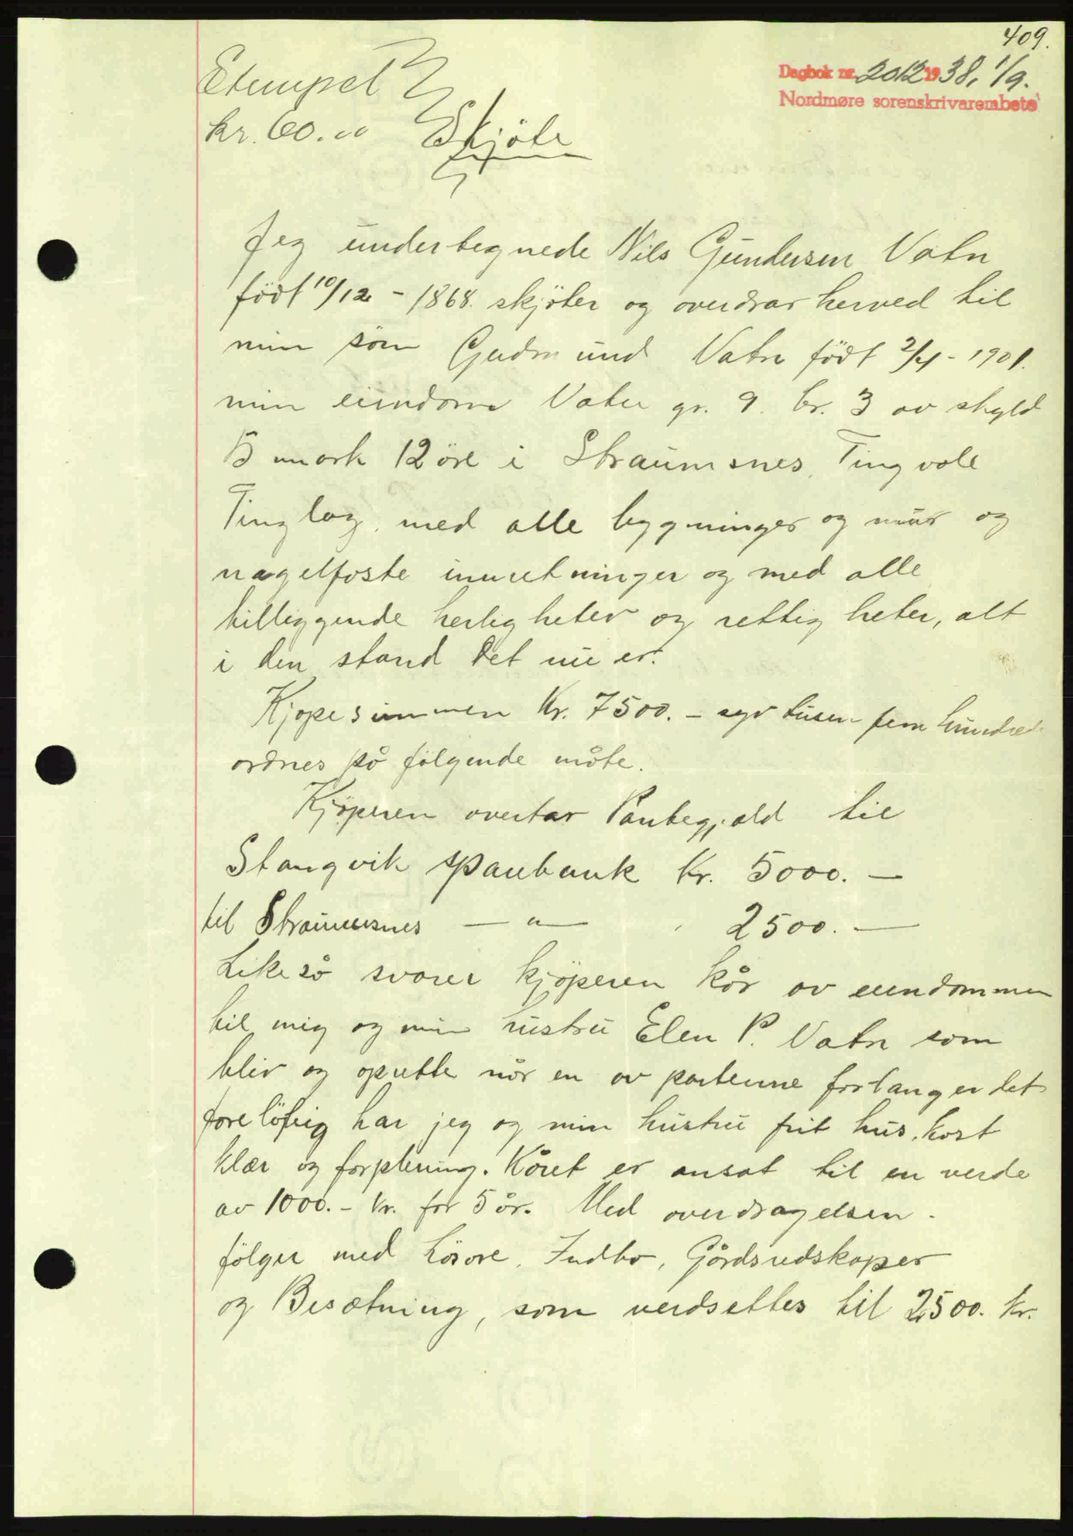 409.
Dagbok nr. 2012 1938, 1/9.
Nordmøre sorenskriverembete
Stempel
kr. 60.00 Skjöte
Jeg undertegnede Nils Gundersen Vatn
født 10/12 - 1868. skjöter og overdrar herved til
min sön Gudmund Vatn födt 2/4 - 1901.
min eiendom Vatn gr. 9. br. 3 av skyld
5 mark 12 öre i Straumsnes, Tingvoll
Tinglag, med alle bygninger og mur og
nagelfaste innretninger og med alle
tilliggende herligheter og rettigheter, alt
i den stand det nu er.
Kjøpesummen kr. 7500.- syv tusen fem hundred
ordnes på følgende måte.
Kjöperen overtar Pantegjæld til
Stangvik sparebank kr. 5000. —
til Straumsnes — " — 2500. —
Likeså svarer kjöperen kår av eiendommen
til mig og min hustru Elen P. Vatn som
blir og oprette når en av partenne forlanger det
foreløbig har jeg og min hustru frit hus, kost
klær og forpleining. Kåret er ansat til en verde
av 1000.- kr. for 5 år. Med overdragelsen
fölger med Lösöre, Indbo, Gårdsredskaper
og Besætning, som verdsettes til 2500. kr.